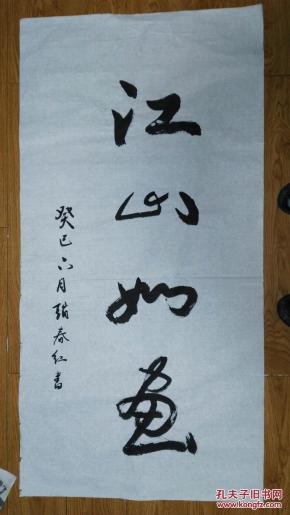 江山如画
癸巳六月赵春红书
孔夫子旧书网